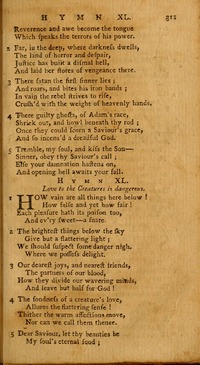 HYMN XL. 311
Reverence and awe become the tongue
Which speaks the terrors of his power.
2 Far, in the deep, where darkness dwells,
The land of horror and despair,
Justice has built a dismal hell,
And laid her stores of vengeance there.
3 There satan the first sinner lies;
And roars, and bites his iron bands;
In vain the rebel strives to rise,
Crush'd with the weight of heavenly hands.
4 There guilty ghosts, of Adam's race,
Shriek out, and howl beneath thy rod;
Once they could scorn a Saviour's grace,
And so incens'd a dreadful God.
5 Tremble, my soul, and kiss the Son—
Sinner, obey thy Saviour's call;
Else your damnation hastens on,
And opening hell awaits your fall.
HYMN XL.
Love to the Creatures is dangerous.
1 HOW vain are all things here below!
How false and yet how fair!
Each pleasure hath its poison too,
And ev'ry sweet—a snare.
2 The brightest things below the sky
Give but a flattering light;
We should suspect some danger nigh,
Where we possess delight.
3 Our dearest joys, and nearest friends,
The partners of our blood,
How they divide our wavering minds,
And leave but half for God!
4 The fondness of a creature's love,
Allures the flattering sense!
Thither the warm affections move,
Nor can we call them thence.
5 Dear Saviour, let thy beauties be
My soul's eternal food;